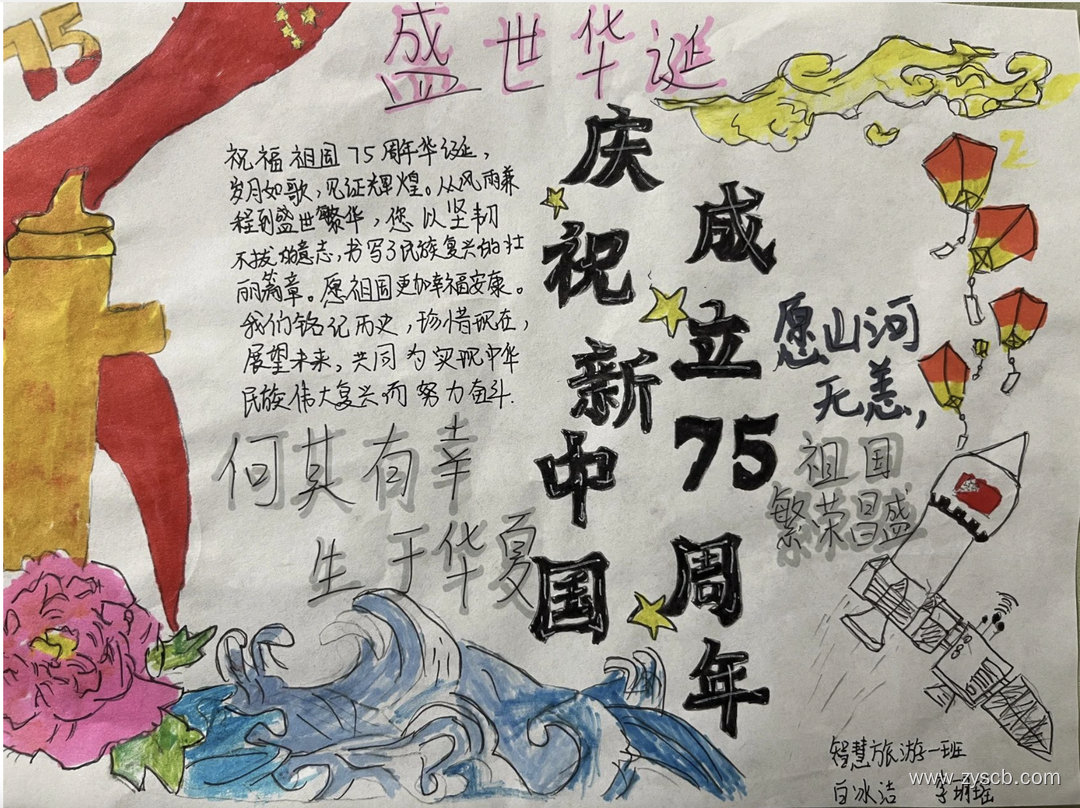 75
盛世华诞
祝福祖国75周年华诞，
岁月如歌，见证辉煌。从风雨兼
程到盛世繁华，您以坚韧
不拔的意志，书写了民族复兴的壮
丽篇章。愿祖国更加幸福安康。
我们铭记历史，珍惜现在，
展望未来，共同为实现中华
民族伟大复兴而努力奋斗.
何其有幸
生于华夏
庆祝新中国
成立75周年
愿山河
无恙，
祖国
繁荣昌盛
智慧旅游一班
白冰洁
www.zyscb.com